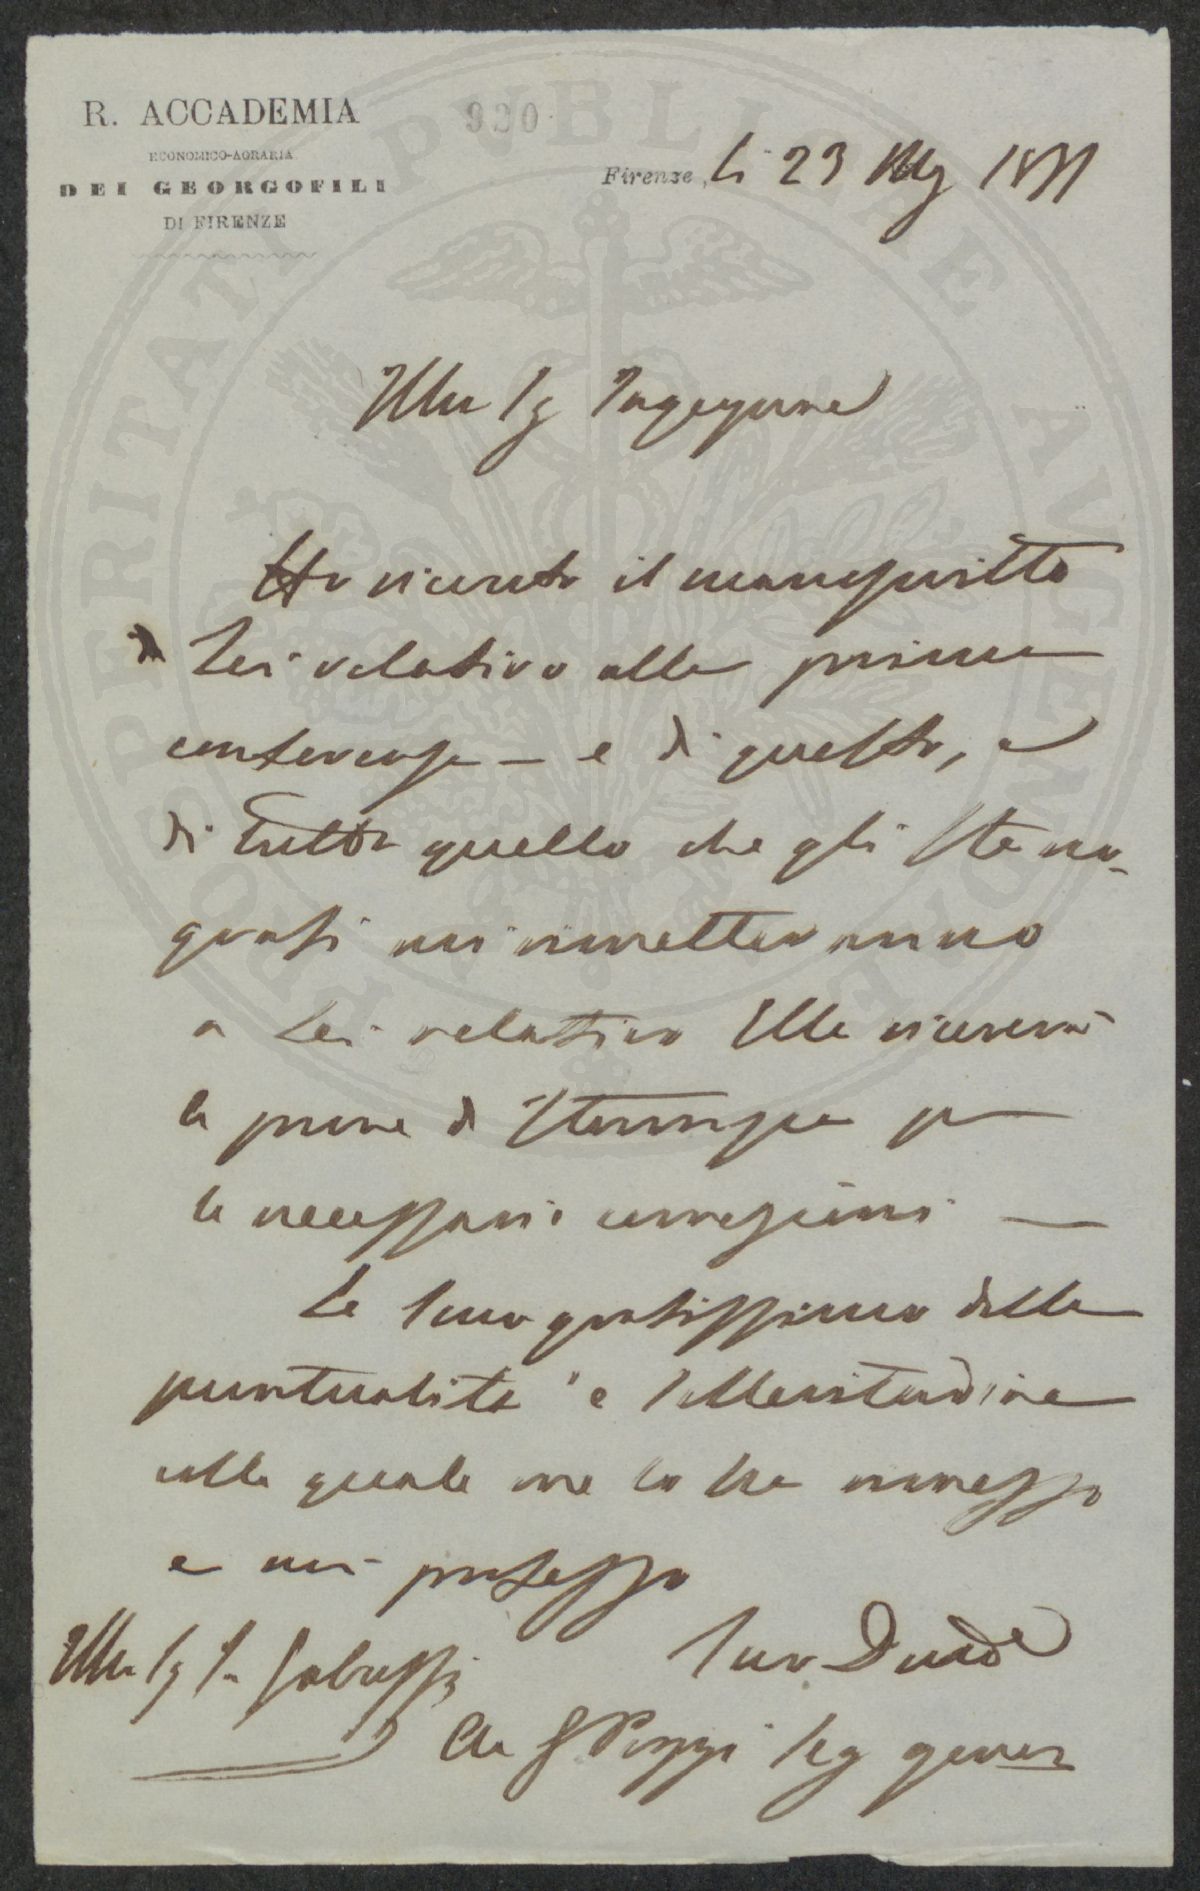 R. ACCADEMIA
ECONOMICO-AGRARIA
DEI GEORGOFILI
DI FIRENZE
930
Firenze, li 23 Mg 1871
PROSPERITATI PVBLICAE AVGENDAE
Illmo Sg Ingegnere
Ho ricevuto il manoscritto
di Lei relativo alla prima
conferenza — e di questo, e
di tutto quello che gli Steno-
grafi mi rimetteranno
a Lei relativo Ella riceverà
le prove di Stampa per
le necessarie correzioni —
Le sono gratissimo della
puntualità e sollecitudine
colla quale me lo ha rimesso
e mi professo
Illmo Sg
Suo Dev
Pozzi Seg gener